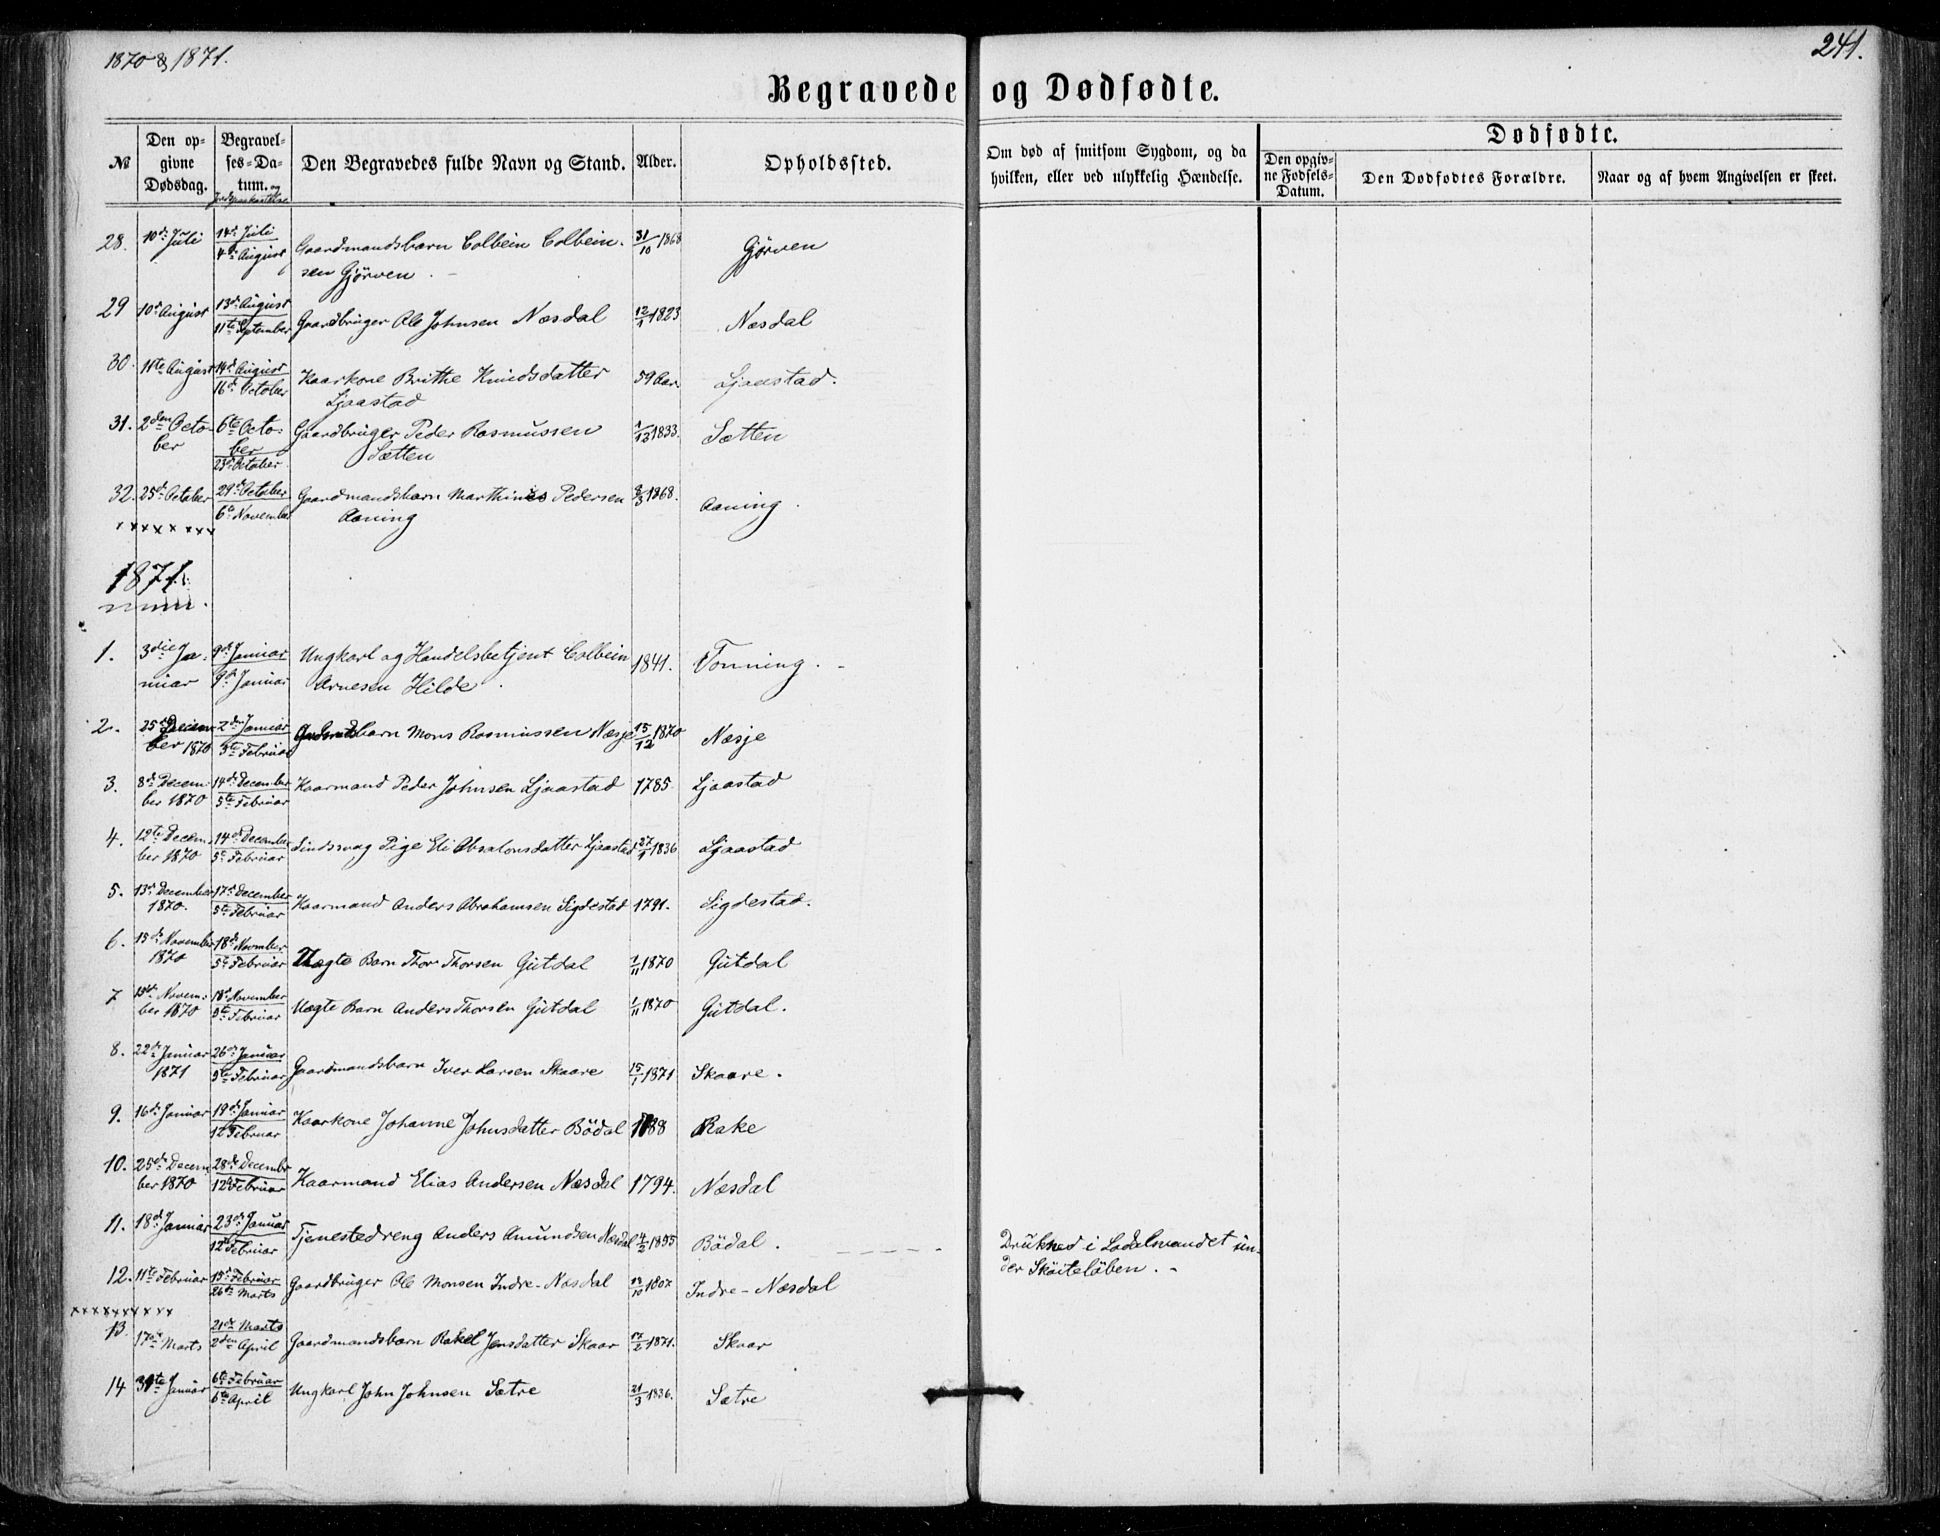 1870 & 1871.
241.
Begravede og Dødfødte.
№
Den opgivne Dødsdag.
Begravelses-Datum. og Jordpaakastelse
Den Begravedes fulde Navn og Stand.
Alder.
Opholdssted.
Om død af smitsom Sygdom, og da hvilken, eller ved ulykkelig Hændelse.
Dødfødte.
Den opgivne Fødsels-Datum.
Den Dødfødtes Forældre.
Naar og af hvem Angivelsen er skeet.
28. 10de Juli 14de Juli / 4de August Gaardmandsbarn Colbein Colbein- 31/10 1868 Gjörven
sen Gjörven.
29 10de August 13de August / 11te September Gaardbruger Ole Johnsen Næsdal 12/1 1823 Næsdal
30. 11te August 14de August / 16de October Kaarkone Brithe Knudsdatter 59 Aar Ljaastad.
Ljaastad
31. 2den Octo- 6te Octo- Gaardbruger Peder Rasmussen 1/12 1833. Sætten
ber ber / 23de October Sætten
32. 25de October 29de October / 6te November Gaardmandsbarn Marthines Pedersen 8/3 1868. Aaning.
Aaning
1871.
1. 3die Ja- 9de Januar Ungkarl og Handelsbetjent Colbein 1841. Tonning.
nuar 9de Januar Arnesen Hilde.
2. 25de Decem- 2den Januar barn Mons Rasmussen Næsje 15/12 1870 Næsje
ber 1870 5te Februar
3. 8de Decem- 14de December Kaarmand Peder Johnsen Ljaastad 1785. Ljaastad
ber 1870 5te Februar
4. 12te Decem- 14de December Sindssvag Pige Eli Absalonsdatter Ljaastad 27/1 1836 Ljaastad
ber 1870 5te Februar
5. 13de December 17de December Kaarmand Anders Abrahamsen Sigdestad 1791. Sigdestad.
1870. 5te Februar
6. 15de November 18de November Uægte Barn Thor Thorsen Gutdal 1/11 1870 Gutdal
1870 5te Februar
7 15de Novem- 18de November Uægte Barn Anders Thorsen Gutdal 1/11 1870 Gutdal.
ber 1870 5te Februar
8. 22de Januar 26de Januar Gaardmandsbarn Iver Larsen Skaare 15/1 1871 Skaare.
1871 5te Februar
9. 16de Januar 19de Januar / 12te Februar Kaarkone Johanne Johnsdatter Bödal 1788 Rake
10. 25de Decem- 28de December Kaarmand Elias Andersen Næsdal 1794. Næsdal
ber 1870 12te Februar
11. 18de Januar 23de Januar / 12te Februar Tjenestedreng Anders Amundsen Næsdal 4/3 1855 Bödal. Drukned i Lodalsvandet un-
der Sköiteløben.
12. 11te Februar 15de Februar / 26de Marts Gaardbruger Ole Monsen Indre-Næsdal 1807 Indre-Næsdal
13. 17de Marts 21de Marts / 2den April Gaardmandsbarn Rakel Jensdatter Skaar 17/2 1871. Skaar
14 31te Januar 6te Februar / 6te April Ungkarl John Johnsen Sætre 21/3 1836. Sætre